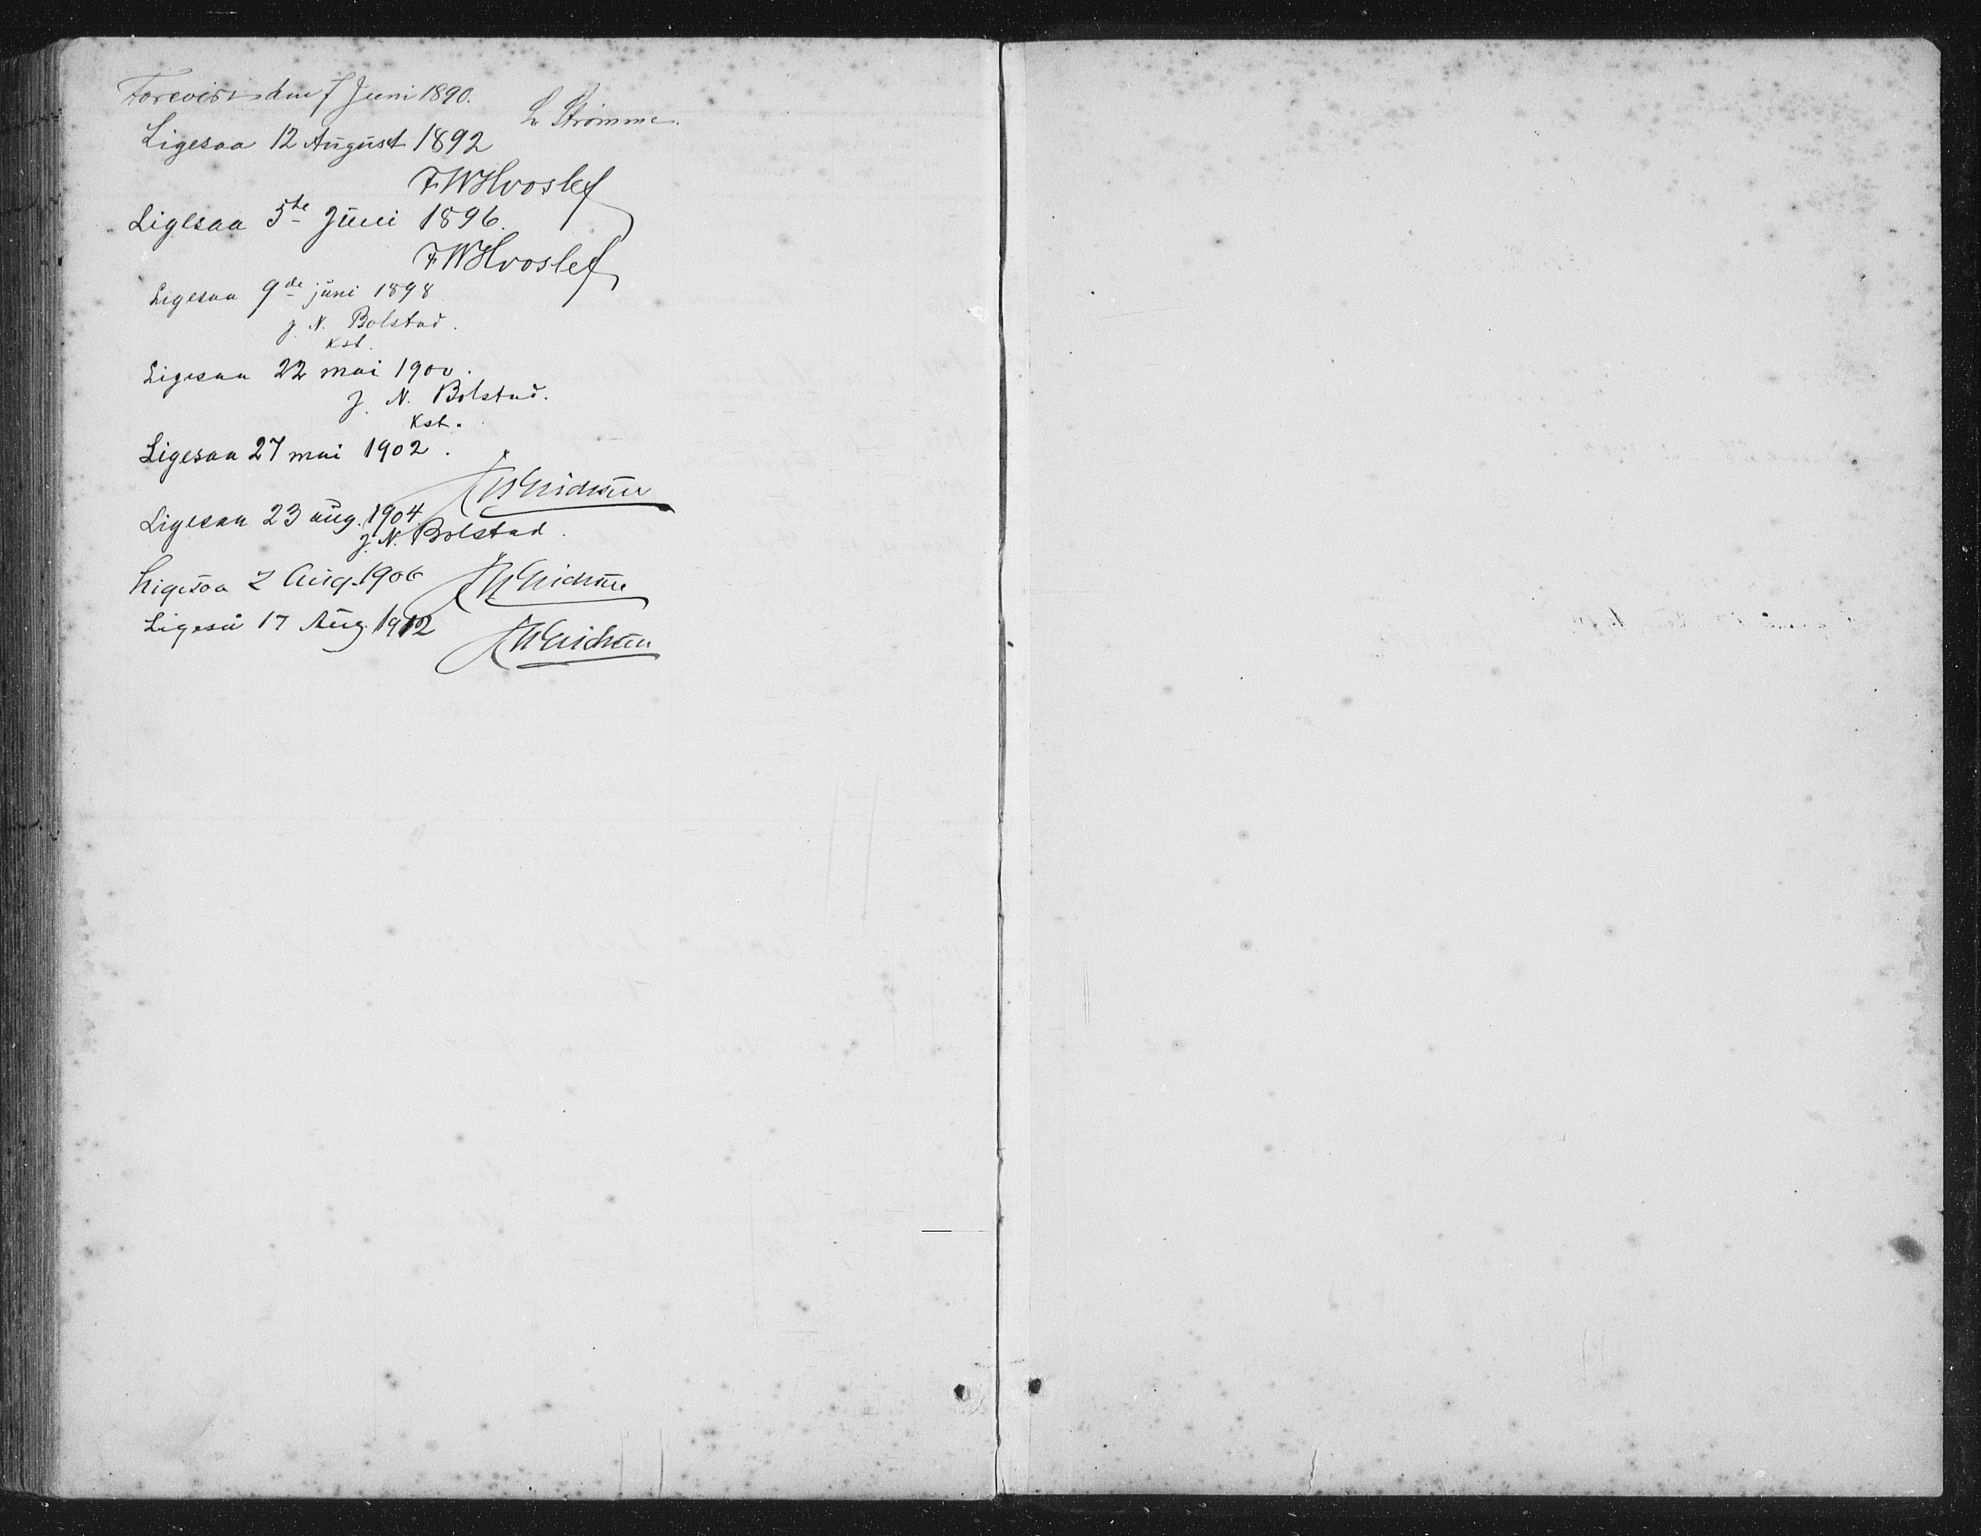 Forevist den 7 Juni 1890.
L. Strømme.
Ligesaa 12 August 1892
F W Hvoslef
Ligesaa 5te Juni 1896.
F W Hvoslef
Ligesaa 9de juni 1898
J. N. Bolstad.
Kst.
Ligesaa 22 mai 1900.
J. N. Bolstad.
Kst.
Ligesaa 27 mai 1902.
Ligesaa 23 aug. 1904.
J. N. Bolstad.
Ligesaa 2 Aug. 1906
Ligeså 17 Aug. 1912